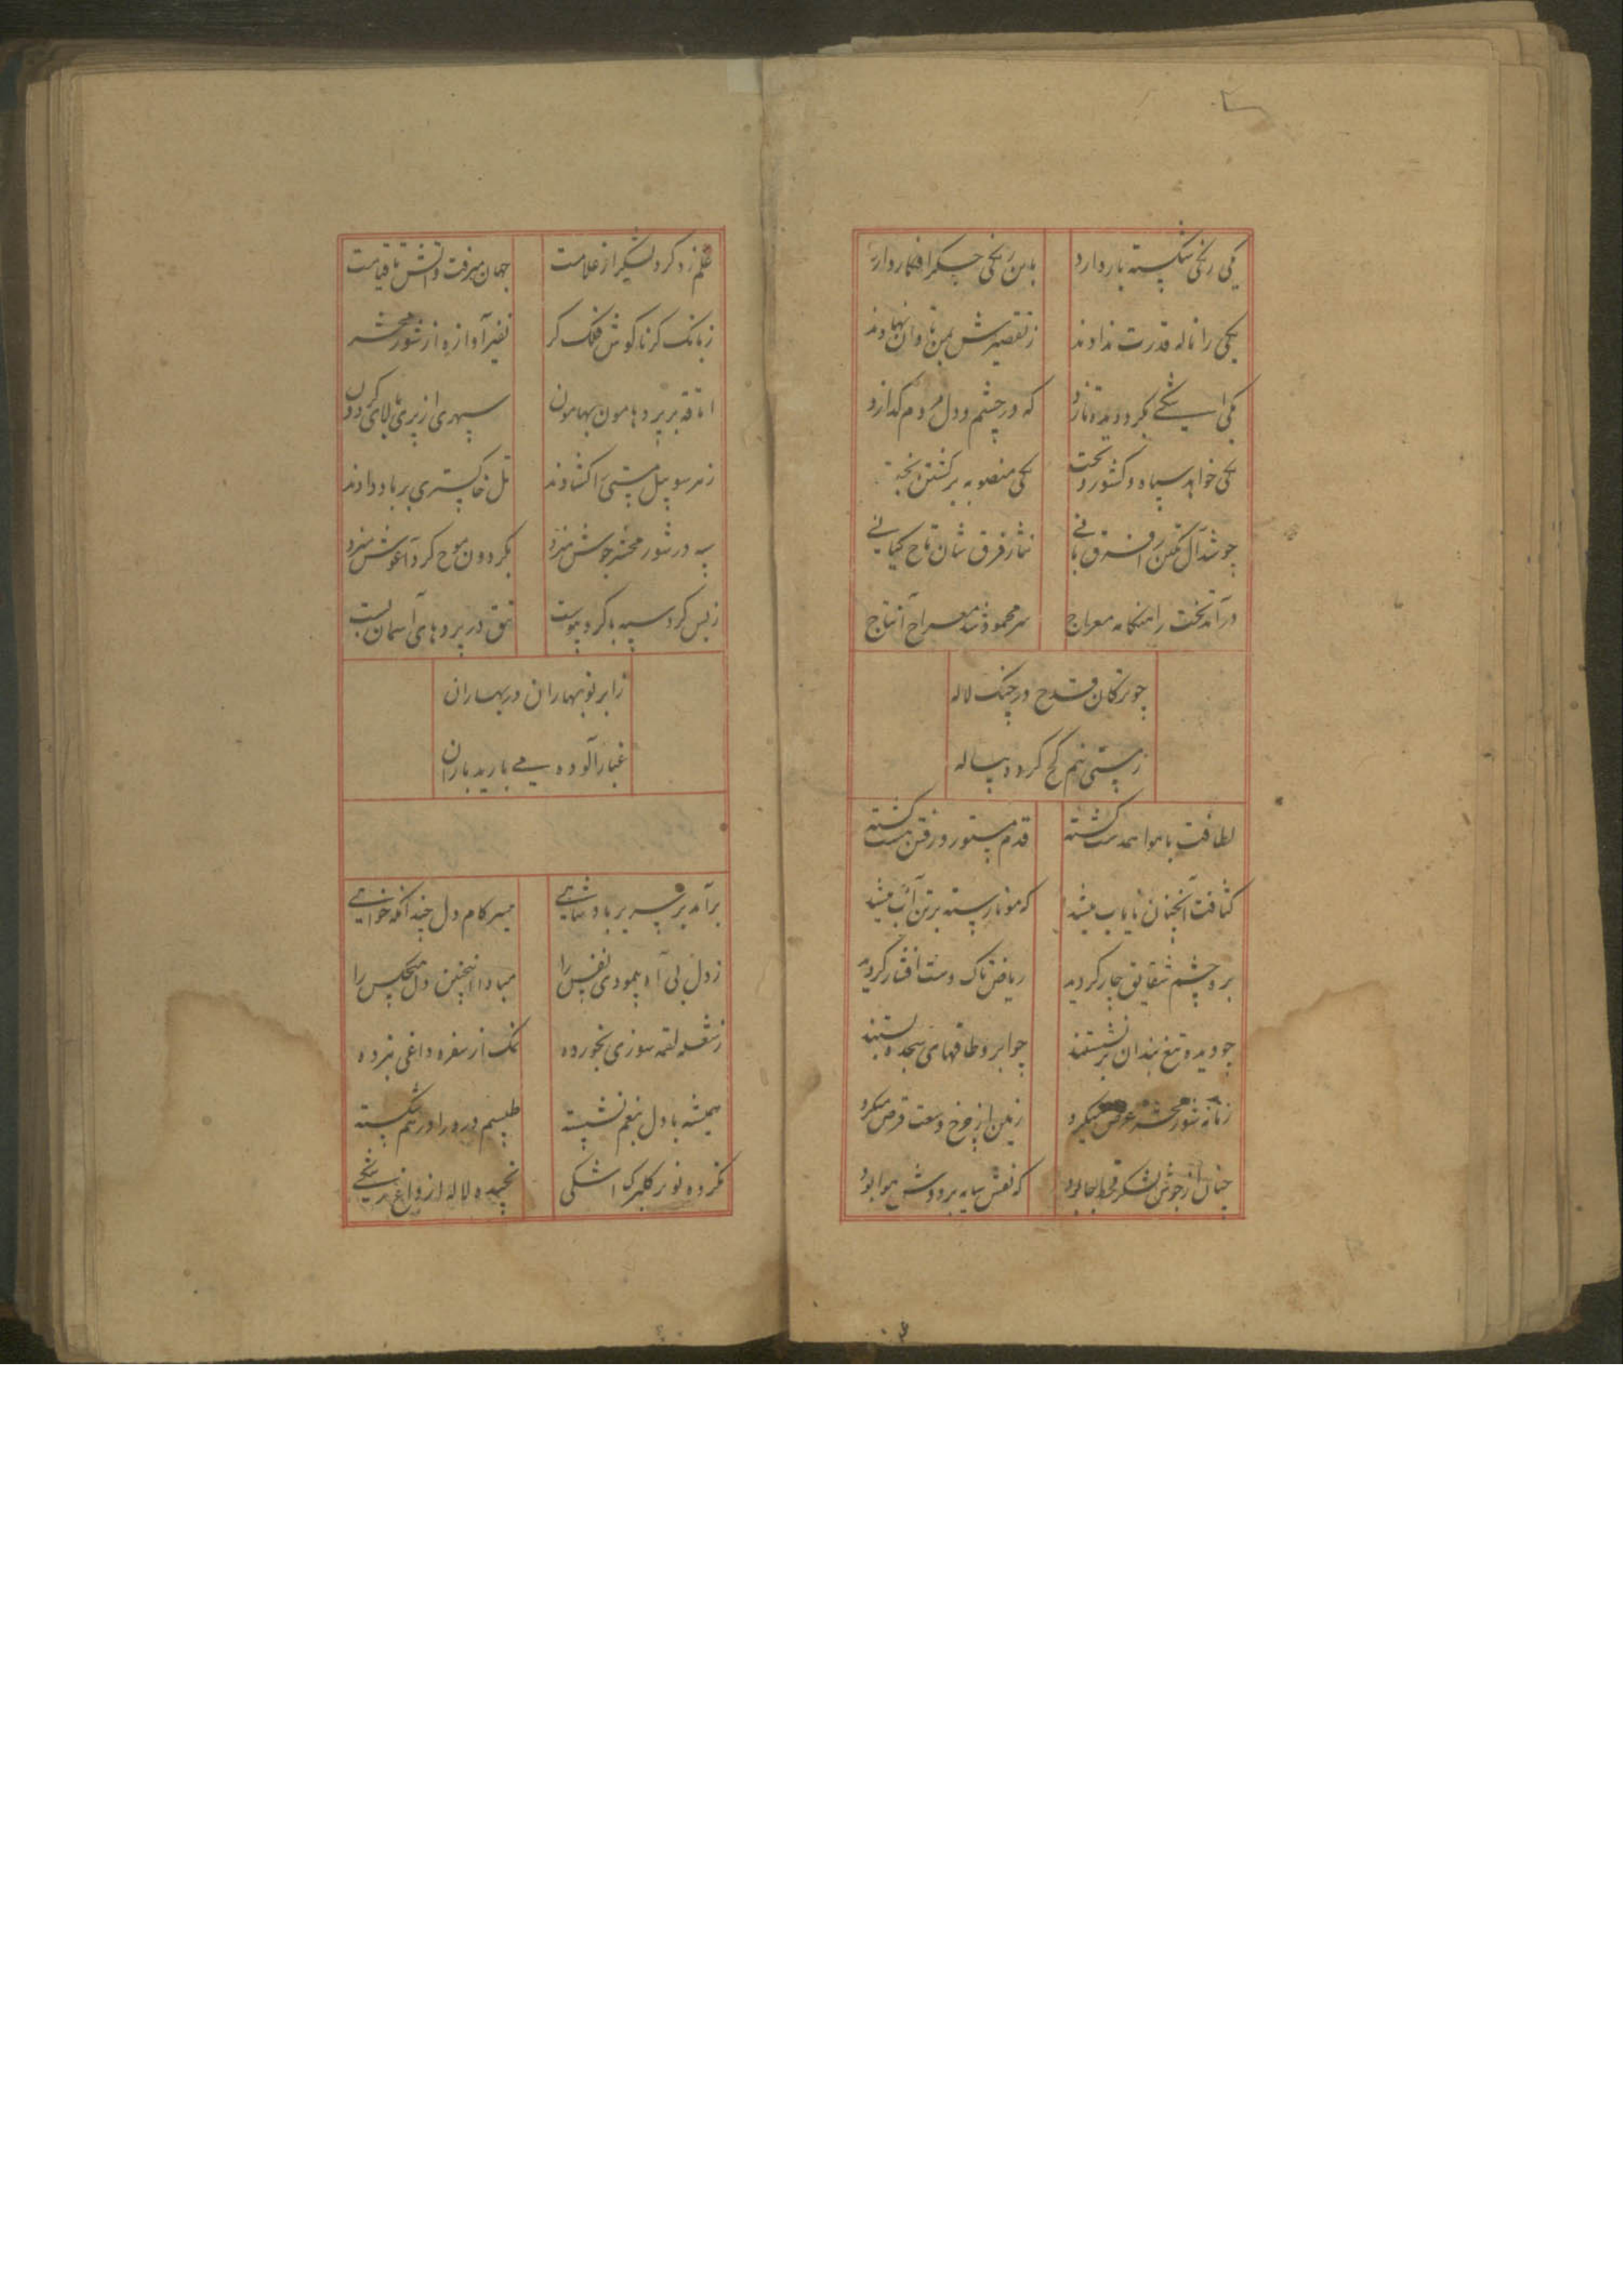 یکی رنجی شکسته بار دارد
باین رنجی جگر افکار دارد
یکی را ناله قدرت ندادند
ز تقصیرش بمن تاوان نهادند
که در چشم و دل مردم گدازد
یکی خواهد سپاه و کشور و تخت
یکی منصوبه برگشتن بخت
نثار فرق شان تاج کیانی
درآمد تخت را هنگامه معراج
سر محمود شد معراج آن تاج
چو ترکان قدح در چنگ لاله
ز مستی نیم کج کرده پیاله
لطافت با هوا همدست گشته
قدم مستور و رفتن مست گشته
کثافت آنچنان نایاب میشد
که مو نارسته بر تن آب میشد
برو چشم شقایق چار کردید
ریاض تاک دست افشار کردید
چو دیده تیغ بندان برنشستند
چو ابرو طاقهای سجده بستند
زمانه شور محشر عرض میکرد
زمین از چرخ وسعت قرض میکرد
چنان از جوش لشکر قحط جا بود
که نقش سایه بر دوش هوا بود
علم زد گرد لشکر از علامت
جهان میرفت و گفتش تا قیامت
ز بانگ کرنا گوش فلک کر
نفیر آوازه از شور محشر
اتاقه بر پرد هامون بهامون
سپهری از پری بالای گردون
ز هر سو پیل مستی را گشادند
تل خاکستری بر باد دادند
سپه در شور محشر جوش میزد
بگردون موج گرد آغوش میزد
ز بس گرد سپه با گرد پیوست
تتق در پردهای آسمان بست
ز ابر نوبهاران در بهاران
غبارآلوده می بارید باران
برآمد بر سریر پادشاهی
میسر کام دل چندانکه خواهی
ز دل بی آه پیمودی نفس را
مبادا اینچنین دل هیچکس را
ز شعله لقمه سوزی نخورده
نمک از سفره داغی نبرده
همیشه با دل بیغم نشسته
طلسم درد را در هم شکسته
نکرده نوبر گلبرگ اشکی
نچیده لاله از داغ رشکی